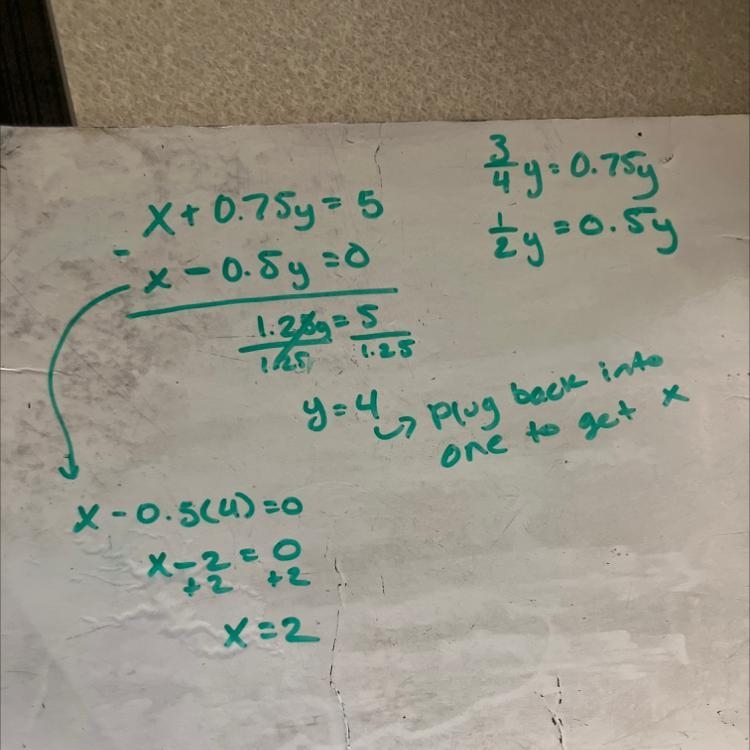 x + 0.75y = 5
- x - 0.5y = 0
1.25y = 5
1.25 1.25
y = 4 → plug back into
one to get x
x - 0.5(4) = 0
x - 2 = 0
+2 +2
x = 2
3/4 y = 0.75y
1/2 y = 0.5y